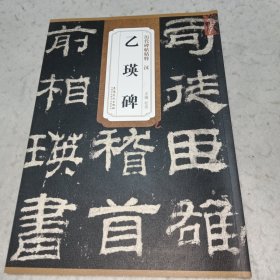 司徒臣雄
稽首
前相瑛書
历代碑帖精粹 汉
乙瑛碑